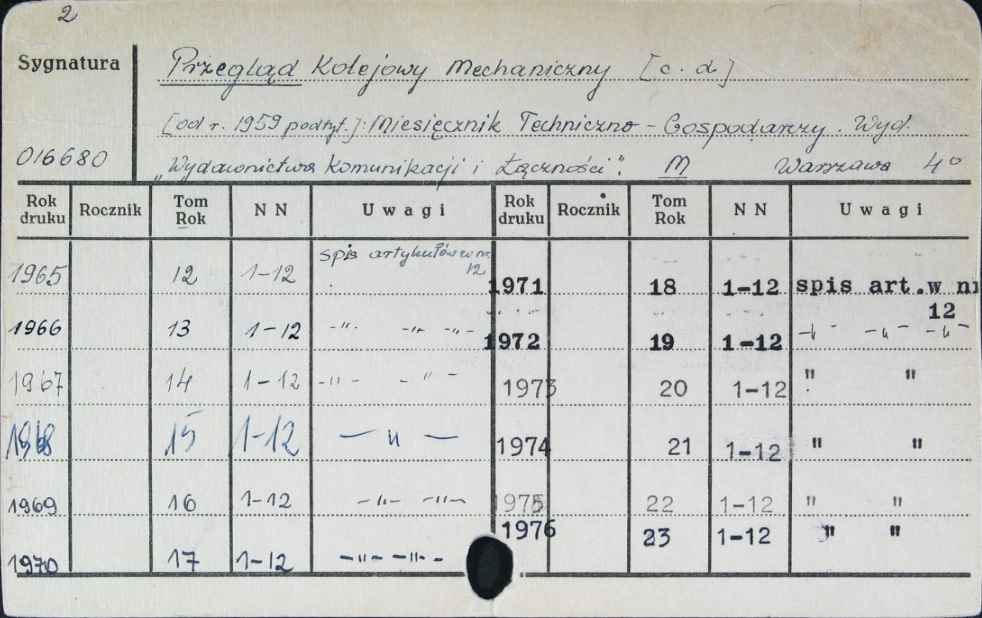 2
Sygnatura
Przegląd Kolejowy Mechaniczny [c. d.]
[od r. 1959 podtyt.]: Miesięcznik Techniczno - Gospodarczy. Wyd.
016680
"Wydawnictwa Komunikacji i Łączności". M Warszawa 4°
Rok druku Rocznik Tom Rok N N Uwagi Rok druku Rocznik Tom Rok N N Uwagi
1965 12 1-12 spis artykułów w nr 12
1971 18 1-12 spis art. w nr 12
1966 13 1-12 -"- -"- -"-
1972 19 1-12 -"- -"- -"-
1967 14 1-12 -"- -"-
1973 20 1-12 " "
1968 15 1-12 - " -
1974 21 1-12 " "
1969 16 1-12 -"- -"-
1975 22 1-12 " "
1976 23 1-12 " "
1970 17 1-12 -"- -"-